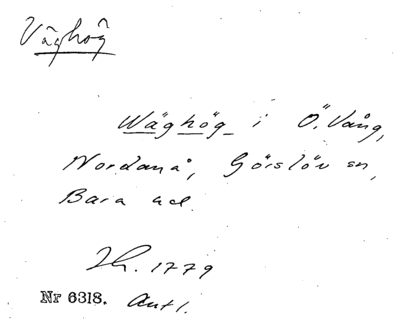 Väghög
Wäghög i Ö. Vång,
Nordanå, Görslöv sn,
Bara hd.
Lh. 1779
Nr 6318. Avt 1.